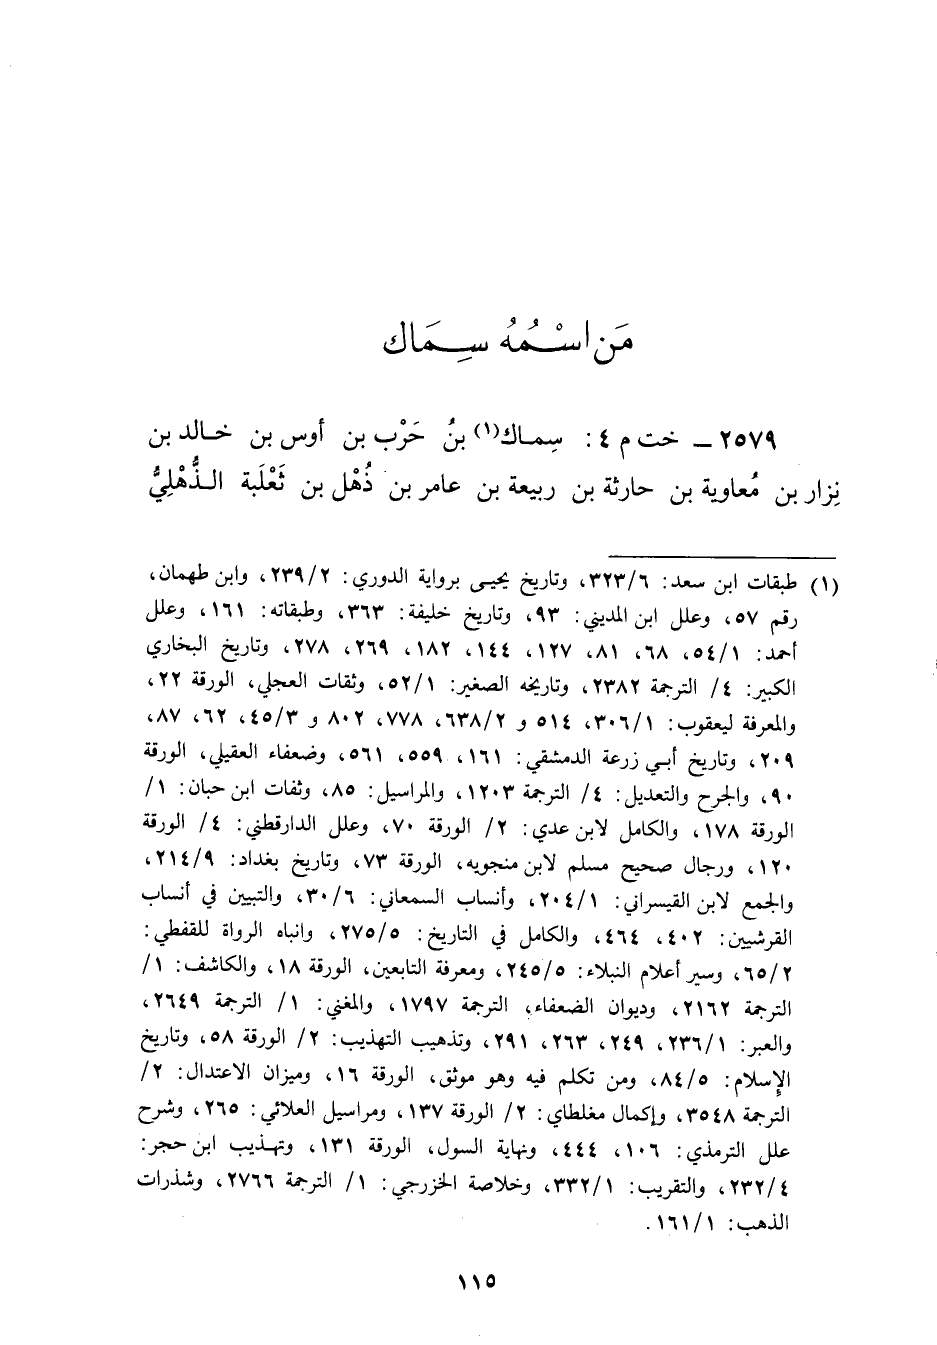 مَن اسْمُهُ سِمَاك
٢٥٧٩ ـ خت م ٤ : سِماك(١) بنُ حَرْب بن أوس بن خالد بن
نِزار بن مُعاوية بن حارثة بن ربيعة بن عامر بن ذُهْل بن ثَعْلَبة الذُّهْلِيُّ
(١) طبقات ابن سعد: ٣٢٣/٦، وتاريخ يحيى برواية الدوري: ٢٣٩/٢، وابن طهمان،
رقم ٥٧، وعلل ابن المديني: ٩٣، وتاريخ خليفة: ٣٦٣، وطبقاته: ١٦١، وعلل
أحمد: ٥٤/١، ٦٨، ٨١، ١٢٧، ١٤٤، ١٨٢، ٢٦٩، ٢٧٨، وتاريخ البخاري
الكبير: ٤/ الترجمة ٢٣٨٢، وتاريخه الصغير: ٥٢/١، وثقات العجلي، الورقة ٢٢،
والمعرفة ليعقوب: ٣٠٦/١، ٥١٤ و ٦٣٨/٢، ٧٧٨، ٨٠٢ و ٤٥/٣، ٦٢، ٨٧،
٢٠٩، وتاريخ أبي زرعة الدمشقي: ١٦١، ٥٥٩، ٥٦١، وضعفاء العقيلي، الورقة
٩٠، والجرح والتعديل: ٤/ الترجمة ١٢٠٣، والمراسيل: ٨٥، وثقات ابن حبان: ١/
الورقة ١٧٨، والكامل لابن عدي: ٢/ الورقة ٧٠، وعلل الدارقطني: ٤/ الورقة
١٢٠، ورجال صحيح مسلم لابن منجويه، الورقة ٧٣، وتاريخ بغداد: ٢١٤/٩،
والجمع لابن القيسراني: ٢٠٤/١، وأنساب السمعاني: ٣٠/٦، والتبيين في أنساب
القرشيين: ٤٠٢، ٤٦٤، والكامل في التاريخ: ٢٧٥/٥، وانباه الرواة للقفطي:
٦٥/٢، وسير أعلام النبلاء: ٢٤٥/٥، ومعرفة التابعين، الورقة ١٨، والكاشف: ١/
الترجمة ٢١٦٢، وديوان الضعفاء، الترجمة ١٧٩٧، والمغني: ١/ الترجمة ٢٦٤٩،
والعبر: ٢٣٦/١، ٢٤٩، ٢٦٣، ٢٩١، وتذهيب التهذيب: ٢/ الورقة ٥٨، وتاريخ
الإسلام: ٨٤/٥، ومن تكلم فيه وهو موثق، الورقة ١٦، وميزان الاعتدال: ٢/
الترجمة ٣٥٤٨، وإكمال مغلطاي: ٢/ الورقة ١٣٧، ومراسيل العلائي: ٢٦٥، وشرح
علل الترمذي: ١٠٦، ٤٤٤، ونهاية السول، الورقة ١٣١، وتهذيب ابن حجر:
٢٣٢/٤، والتقريب: ٣٣٢/١، وخلاصة الخزرجي: ١/ الترجمة ٢٧٦٦، وشذرات
الذهب: ١٦١/١ .
١١٥